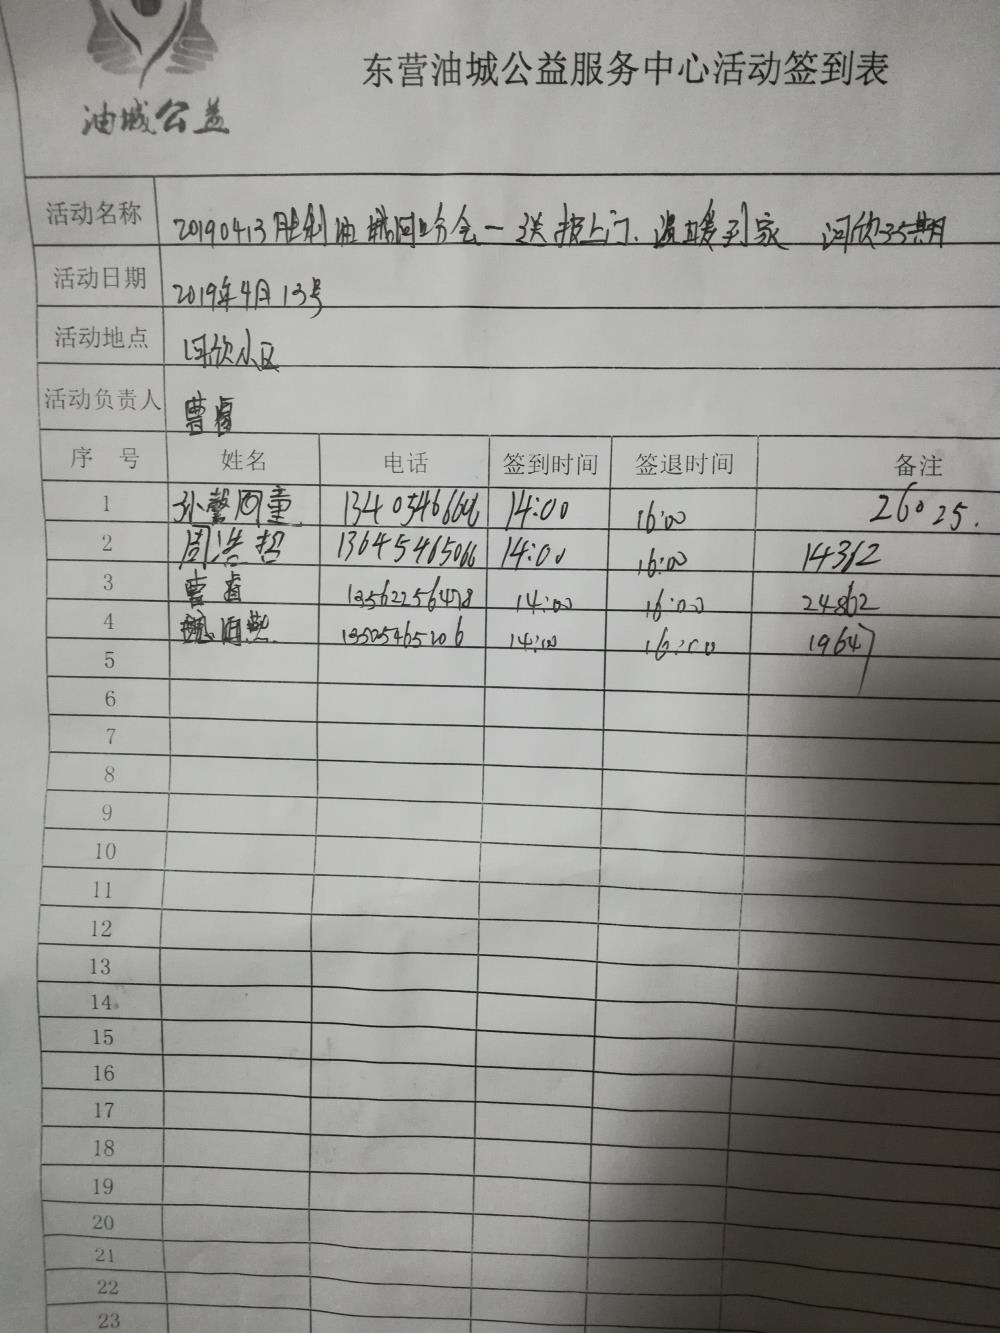 油城公益
东营油城公益服务中心活动签到表
活动名称 20190413胜利油城河口分会一送报上门、温暖到家 河欣35期
活动日期 2019年4月13号
活动地点 河欣小区
活动负责人 曹
序 号 姓名 电话 签到时间 签退时间 备注
1 孙馨 童 14:00 16:00 26025.
2 周浩 13645465066 14:00 16:00 14312
3 曹 13562256478 14:00 16:00 24862
4 14:00 16:00 19647
5
6
7
8
9
10
11
12
13
14
15
16
17
18
19
20
21
22
23